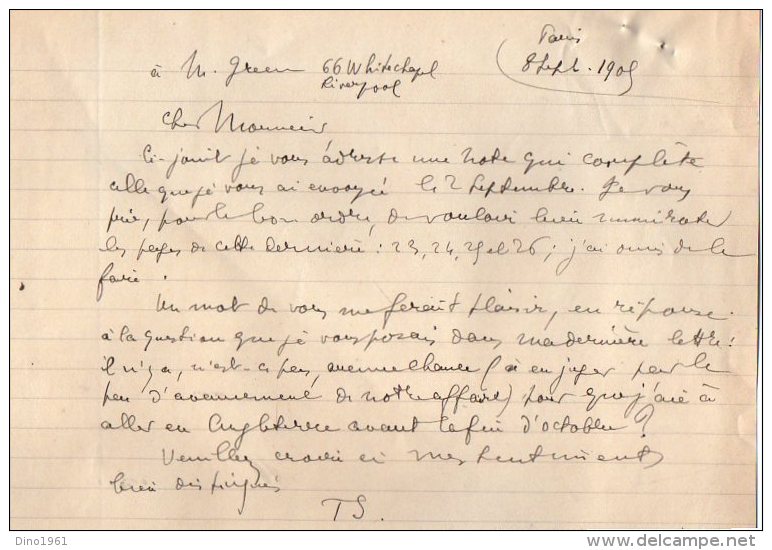 Paris
8 Sept. 1905
à M. Green 66 Whitechapel
Liverpool
Cher Monsieur
Ci-joint je vous adresse une note qui complète
celle que je vous ai envoyée le 2 Septembre. Je vous
prie, pour le bon ordre, de vouloir bien numéroter
les pages de cette dernière : 23, 24, 25 et 26 ; j'ai omis de le
faire.
Un mot de vous me ferait plaisir, en réponse
à la question que je vous posais dans ma dernière lettre :
il n'y a, n'est-ce pas, aucune chance (à en juger par le
peu d'avancement de notre affaire) pour que j'aie à
aller en Angleterre avant la fin d'octobre ?
Veuillez croire à mes sentiments
bien distingués
TS.
Dino1961
delcampe.net